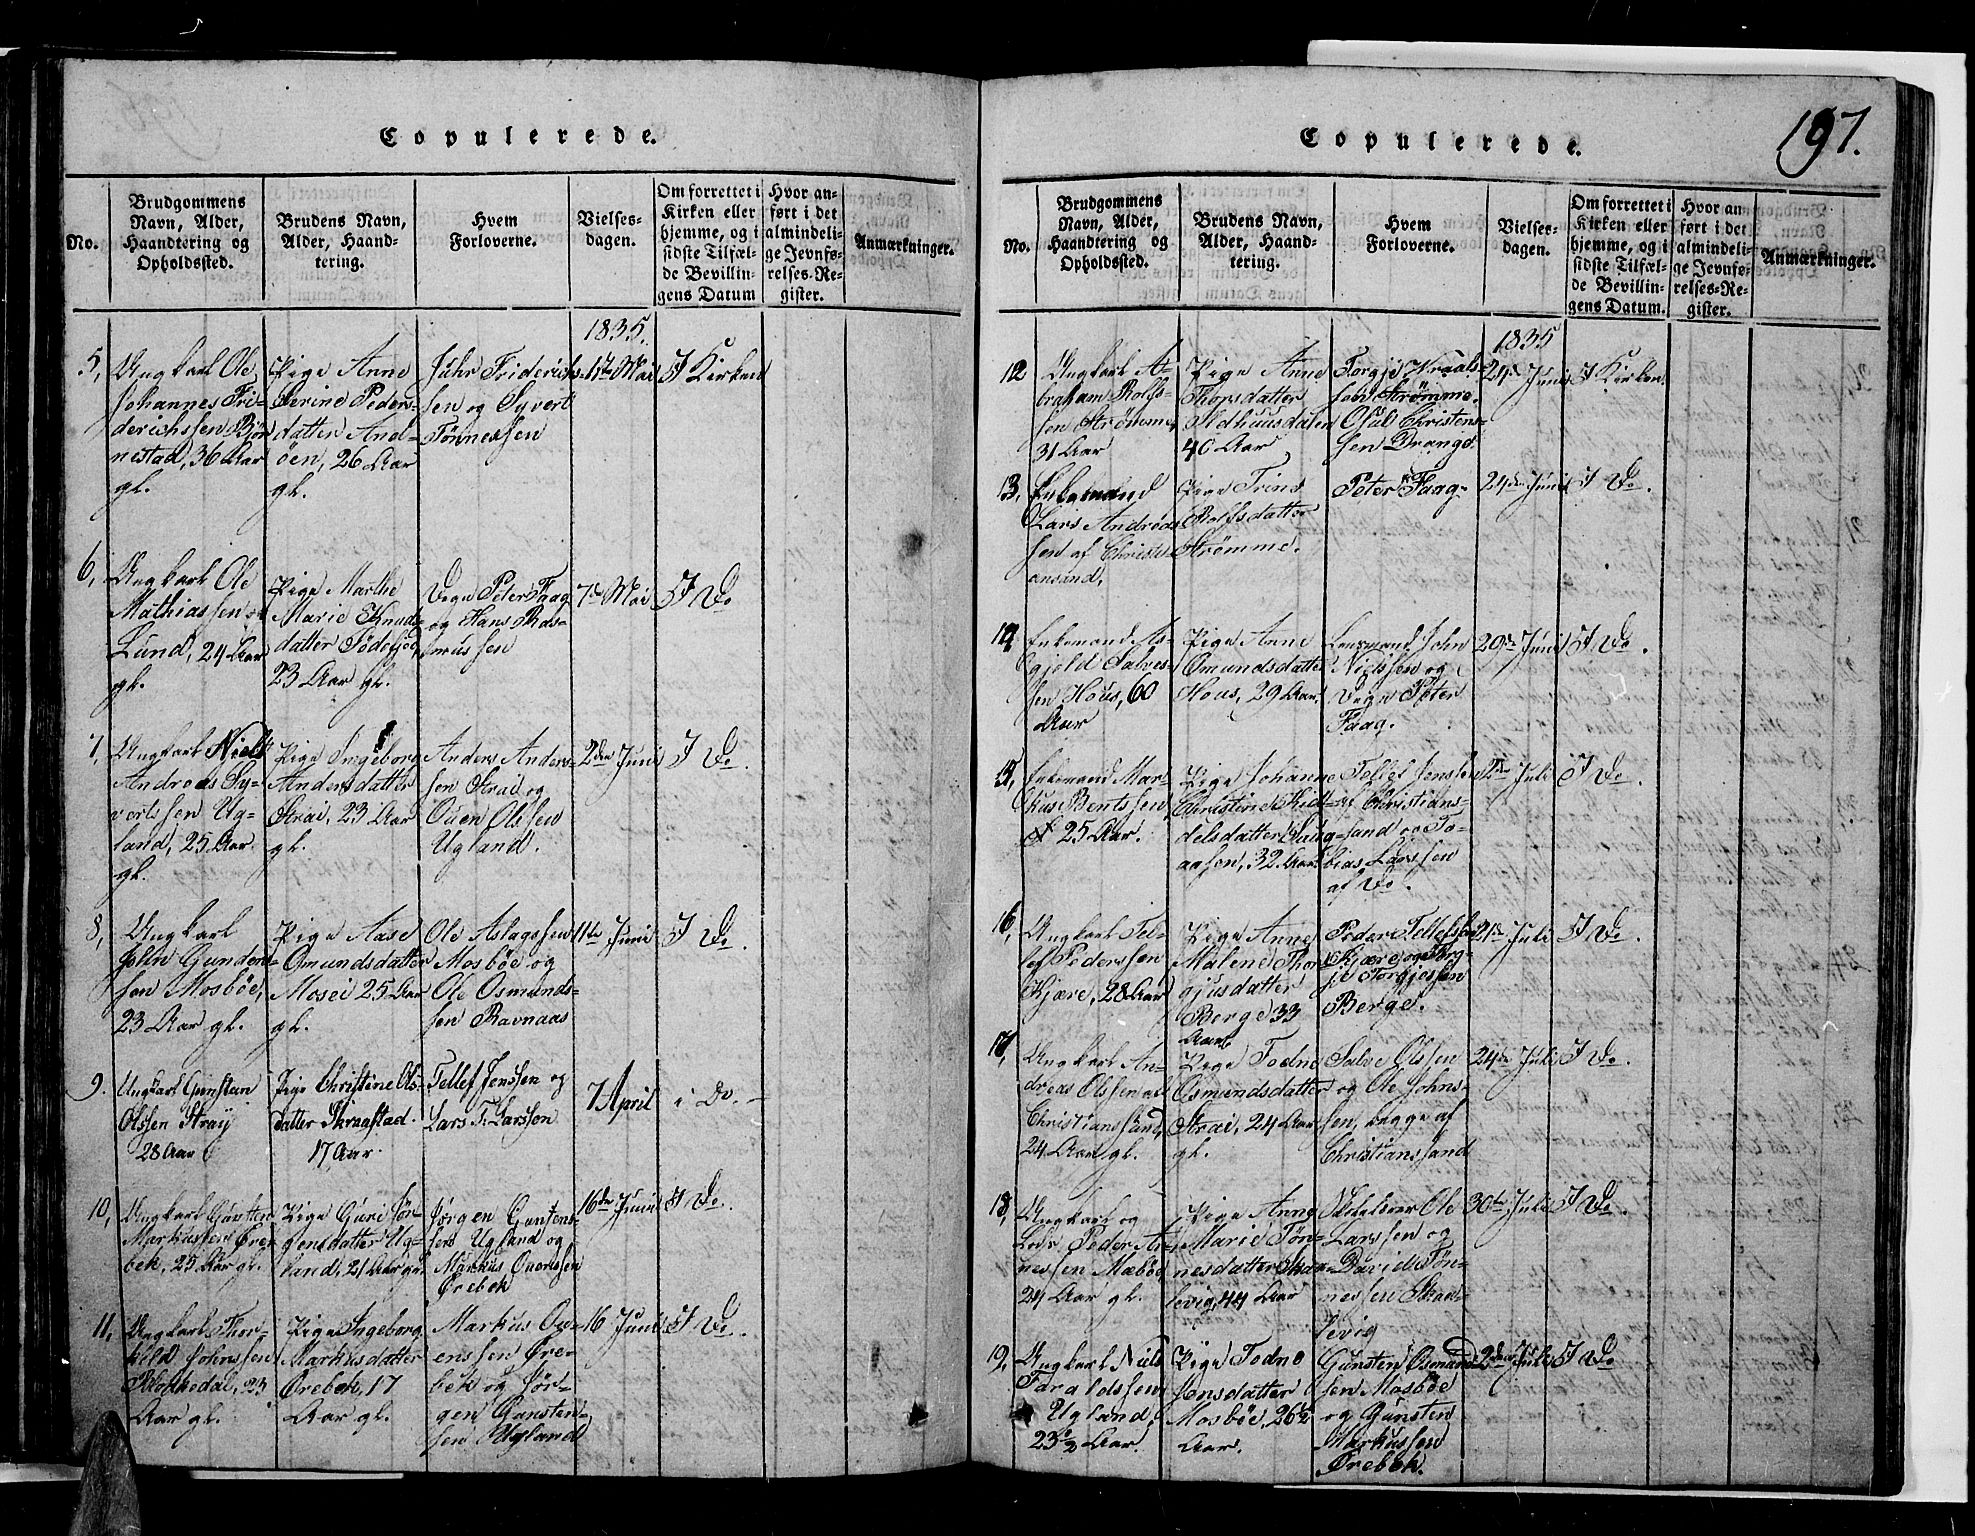 197.
Copulerede.
No.
Brudgommens
Navn, Alder,
Haandtering og
Opholdssted.
Brudens Navn,
Alder, Haand-
tering.
Hvem
Forloverne.
Vielses-
dagen.
Om forrettet i
Kirken eller
hjemme, og i
sidste Tilfæl-
de Bevillin-
gens Datum
Hvor an-
ført i det
almindeli-
ge Jevnfø-
relses-Re-
gister.
Anmærkninger.
1835.
5,
Ungkarl Ole
Johannes Fri-
derichssen Bjør-
nestad, 36 Aar
gl.
Pige Anne
Serine Peders-
datter And-
øen, 26 Aar
gl.
Juhr Friderich-
sen og Syvert
Tønnessen
Mai
I Kirken
6,
Ungkarl Ole
Mathiassen
Lund, 24 Aar
gl.
Pige Marthe
Marie Knuds-
datter
23 Aar gl.
Peter Faag
og Hans Ras-
mussen
7de Mai
I Do
7,
Ungkarl Niels
Andreas Sy-
vertssen Ug-
land, 25 Aar
gl.
Pige Ingeborg
Andersdatter
Strai, 23 Aar
gl.
Anders Anders-
sen Strai og
Ouen Olssen
Ugland.
2den Juni
I Do.
8,
Ungkarl
John Gunder-
sen Mosbøe,
23 Aar gl.
Pige Aase
Omundsdatter
Mosei 25 Aar
gl.
Ole Aslagssen
Mosbøe og
Ole Osmunds-
sen Ravnaas
11te Juni
I Do.
9.
Ungkarl Gunstan
Olssen Straij
28 Aar
Pige Christine Ols-
datter Skranstad.
17 Aar.
Tellef Jenssen og
Lars T. Larsson
7 April
i Do. -
10,
Ungkarl Gunsten
Markussen Øre-
bek, 25 Aar gl.
Pige Guri Jør-
gensdatter Ug-
land, 21 Aar gl.
Jørgen Gunstens-
sen Ugland og
Markus Ouenssen
Ørebek
16de Juni
I Do.
11,
Ungkarl Thor-
kild Johnssen
23
Aar gl.
Pige Ingeborg
Markusdatter
Ørebek, 17
Aar gl.
Markus Ou-
enssen Øre-
bek og Jør-
gen Gunsten-
sen Ugland
16 Juni
I Do.
Copulerede.
No.
Brudgommens
Navn, Alder,
Haandtering og
Opholdssted.
Brudens Navn,
Alder, Haand-
tering.
Hvem
Forloverne.
Vielses-
dagen.
Om forrettet i
Kirken eller
hjemme, og i
sidste Tilfæl-
de Bevillin-
gens Datum.
Hvor an-
ført i det
almindeli-
ge Jevnfø-
relses-Re-
gister.
Anmærkninger.
1835
12
Ungkarl A-
braham Rolfs-
sen Strømme,
31 Aar
Pige Anne
Thorsdatter
40 Aar
Torgje
Strømme.
Osul Christens-
sen Drange.
24de Juni
I Kirken.
13,
Enkemand
Lars Andreas-
sen af Christi-
ansand,
Pige Trine
Rolfsdatter
Strømme.
Peter Faag.
24de Juni
I Do.
14,
Enkemand As-
gjeld Salves-
sen Hous, 60
Aar
Pige Anne
Omundsdatter
Hous, 29 Aar
Lensmand John
Nielssen og
Peter
Faag.
29de Juni
I Do.
15,
Enkemand Mar-
kus Bentssen,
25 Aar.
Pige Johanne
Christine
32 Aar
Tellef Jenssen
af Christians-
sand og To-
bias Larssen
af Do.
Juli
I Do.
16,
Ungkarl Tel-
lef Pederssen
Kjære, 28 Aar
Pige Anne
Malene Thor-
gjusdatter
Berge 33
Aar
Peder Tellefsen
Kjære og Torg-
je Torgjessen
Berge.
21de Juli
I Do.
17,
Ungkarl An-
dreas Olssen af
Christianssand,
24 Aar gl.
Pige Todne
Osmundsdatter
Strai, 24 Aar
gl.
Salve Olssen
og Ole Johns-
sen, begge af
Christianssand
24de Juli
I Do.
18,
Ungkarl og
Lods Peder
24 Aar gl.
Pige Anne
Marie Tøn-
nesdatter Skaa-
levig, 44 Aar
Ole
Larssen og
David Tøn-
nessen Skaa-
levig
30te Juli
I Do.
19,
Ungkarl Niels
Taraldssen
Ugland
23½ Aar.
Pige Todne
Jensdatter
Mosbøe, 26½
Aar.
Gunsten Osmund-
sen Mosbøe
og Gunsten
Markussen
Ørebek.
2den Juli
I Do